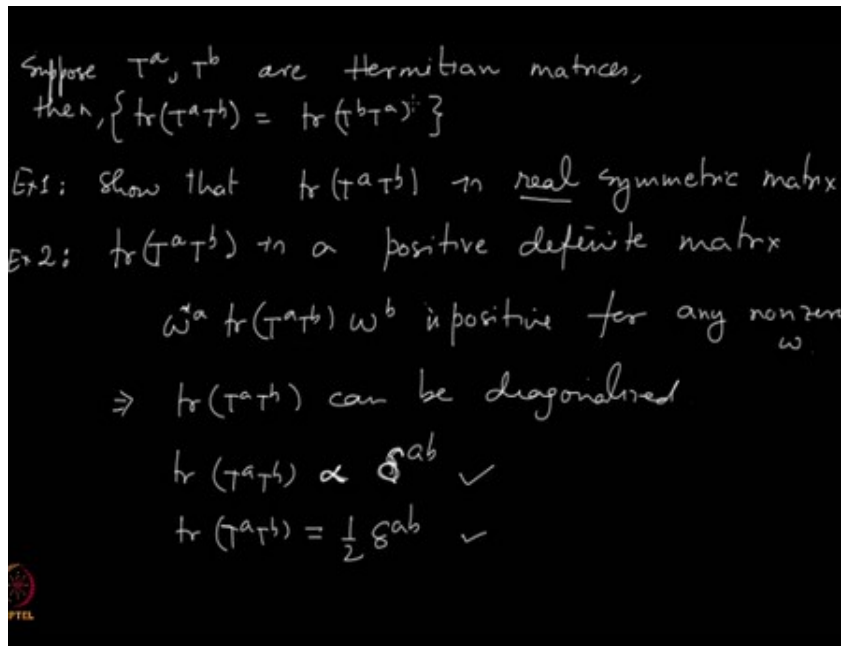 Suppose Tᵃ, Tᵇ are Hermitian matrices,
then, { tr(TᵃTᵇ) = tr(TᵇTᵃ) }
Ex1: Show that tr(TᵃTᵇ) is real symmetric matrix
Ex 2: tr(TᵃTᵇ) is a positive definite matrix
ω*ᵃ tr(TᵃTᵇ) ωᵇ is positive for any nonzero
ω.
⇒ tr(TᵃTᵇ) can be diagonalised
tr(TᵃTᵇ) ∝ δᵃᵇ ✓
tr(TᵃTᵇ) = 1/2 δᵃᵇ ✓
PTEL